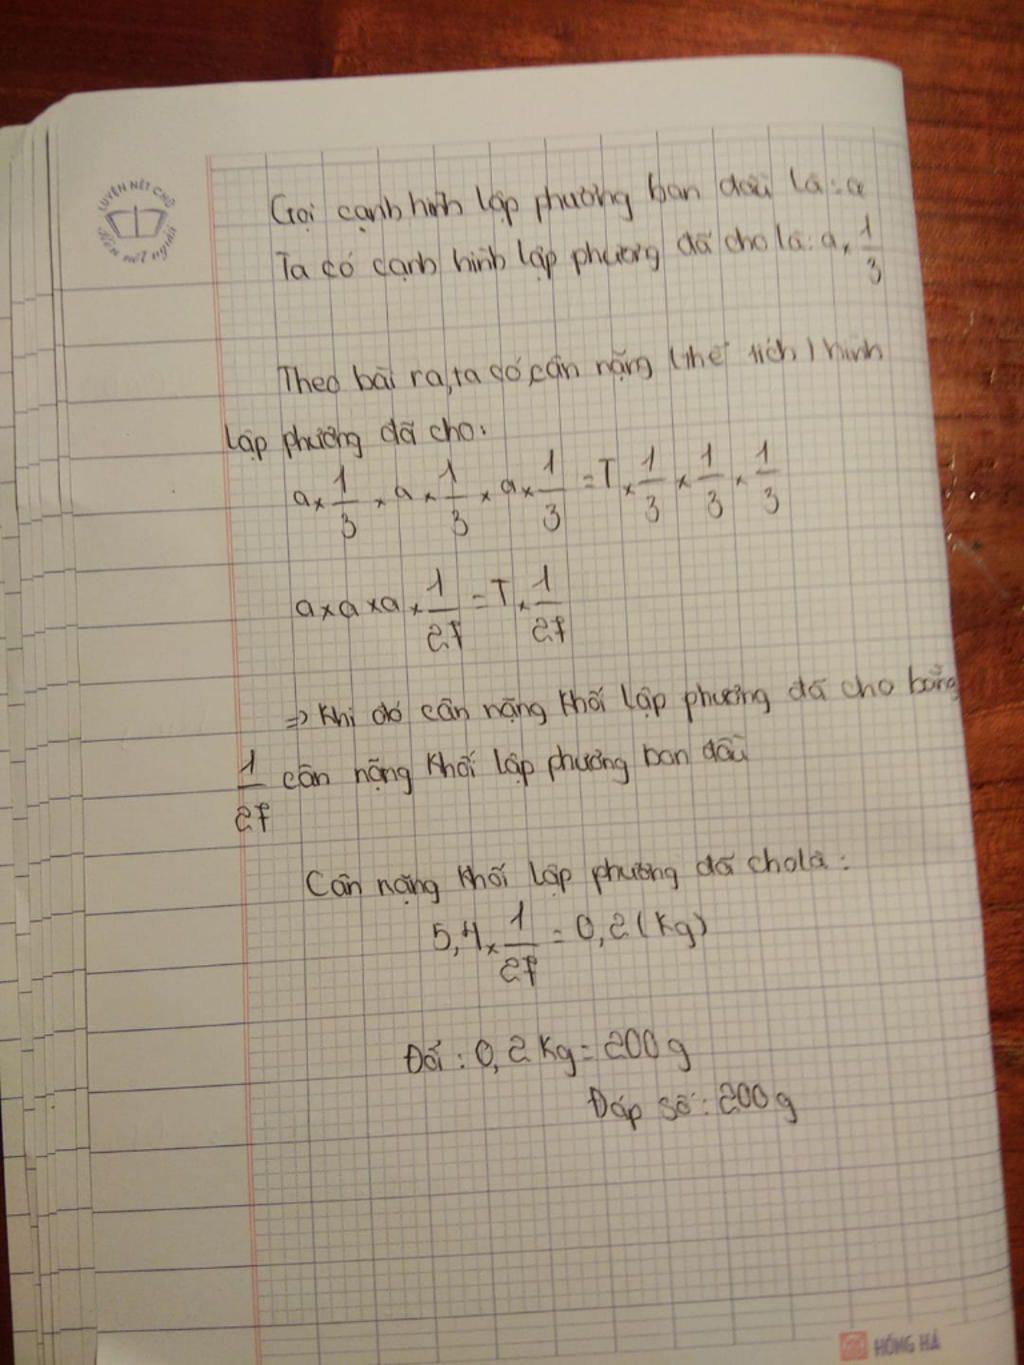 LUYỆN NÉT CHỮ
Rèn nết người
Gọi cạnh hình lập phương ban đầu là: a
Ta có cạnh hình lập phương đã cho là: a × 1/3
Theo bài ra, ta có cân nặng (thể tích) hình
lập phương đã cho:
a × 1/3 × a × 1/3 × a × 1/3 = T × 1/3 × 1/3 × 1/3
a × a × a × 1/27 = T × 1/27
=> Khi đó cân nặng khối lập phương đã cho bằng
1/27 cân nặng khối lập phương ban đầu
Cân nặng khối lập phương đã cho là:
5,4 × 1/27 = 0,2 (kg)
Đổi: 0,2 kg = 200 g
Đáp số: 200 g
HỒNG HÀ